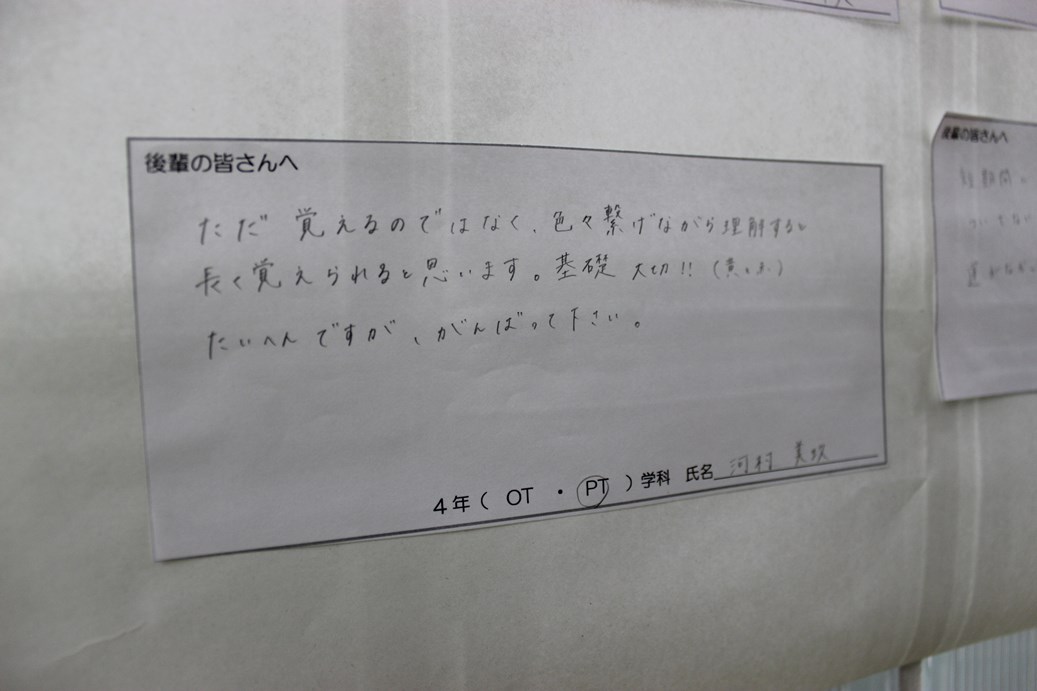 後輩の皆さんへ
ただ覚えるのではなく、色々繋げながら理解すると
長く覚えられると思います。基礎 大切!!
たいへんですが、がんばって下さい。
4年( OT ・ PT )学科 氏名 河村 美
後輩の皆さんへ